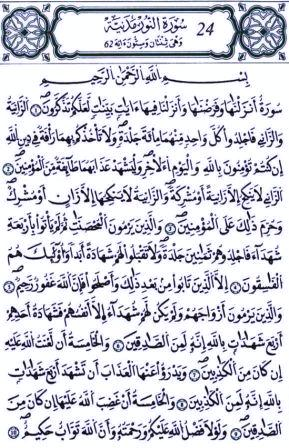 24 سُورَةُ النُّورِ مَدَنِيَّةٌ
وَهِيَ ثِنْتَانِ وَسِتُّونَ آيَةً 62
بِسْمِ اللَّهِ الرَّحْمَٰنِ الرَّحِيمِ
سُورَةٌ أَنزَلْنَاهَا وَفَرَضْنَاهَا وَأَنزَلْنَا فِيهَا ءَايَاتٍ بَيِّنَاتٍ لَعَلَّكُمْ تَذَكَّرُونَ ① الزَّانِيَةُ
وَالزَّانِي فَاجْلِدُوا كُلَّ وَاحِدٍ مِنْهُمَا مِائَةَ جَلْدَةٍ وَلَا تَأْخُذْكُمْ بِهِمَا رَأْفَةٌ فِي دِينِ اللَّهِ
إِنْ كُنْتُمْ تُؤْمِنُونَ بِاللَّهِ وَالْيَوْمِ الْآخِرِ وَلْيَشْهَدْ عَذَابَهُمَا طَائِفَةٌ مِنَ الْمُؤْمِنِينَ ②
الزَّانِي لَا يَنكِحُ إِلَّا زَانِيَةً أَوْ مُشْرِكَةً وَالزَّانِيَةُ لَا يَنكِحُهَا إِلَّا زَانٍ أَوْ مُشْرِكٌ
وَحُرِّمَ ذَٰلِكَ عَلَى الْمُؤْمِنِينَ ③ وَالَّذِينَ يَرْمُونَ الْمُحْصَنَاتِ ثُمَّ لَمْ يَأْتُوا بِأَرْبَعَةِ
شُهَدَاءَ فَاجْلِدُوهُمْ ثَمَانِينَ جَلْدَةً وَلَا تَقْبَلُوا لَهُمْ شَهَادَةً أَبَدًا وَأُولَٰئِكَ هُمُ
الْفَاسِقُونَ ④ إِلَّا الَّذِينَ تَابُوا مِنْ بَعْدِ ذَٰلِكَ وَأَصْلَحُوا فَإِنَّ اللَّهَ غَفُورٌ رَحِيمٌ ⑤
وَالَّذِينَ يَرْمُونَ أَزْوَاجَهُمْ وَلَمْ يَكُنْ لَهُمْ شُهَدَاءُ إِلَّا أَنْفُسُهُمْ فَشَهَادَةُ أَحَدِهِمْ
أَرْبَعُ شَهَادَاتٍ بِاللَّهِ إِنَّهُ لَمِنَ الصَّادِقِينَ ⑥ وَالْخَامِسَةُ أَنَّ لَعْنَتَ اللَّهِ عَلَيْهِ
إِنْ كَانَ مِنَ الْكَاذِبِينَ ⑦ وَيَدْرَؤُا عَنْهَا الْعَذَابَ أَنْ تَشْهَدَ أَرْبَعَ شَهَادَاتٍ
بِاللَّهِ إِنَّهُ لَمِنَ الْكَاذِبِينَ ⑧ وَالْخَامِسَةَ أَنَّ غَضَبَ اللَّهِ عَلَيْهَا إِنْ كَانَ مِنَ
الصَّادِقِينَ ⑨ وَلَوْلَا فَضْلُ اللَّهِ عَلَيْكُمْ وَرَحْمَتُهُ وَأَنَّ اللَّهَ تَوَّابٌ حَكِيمٌ ⑩